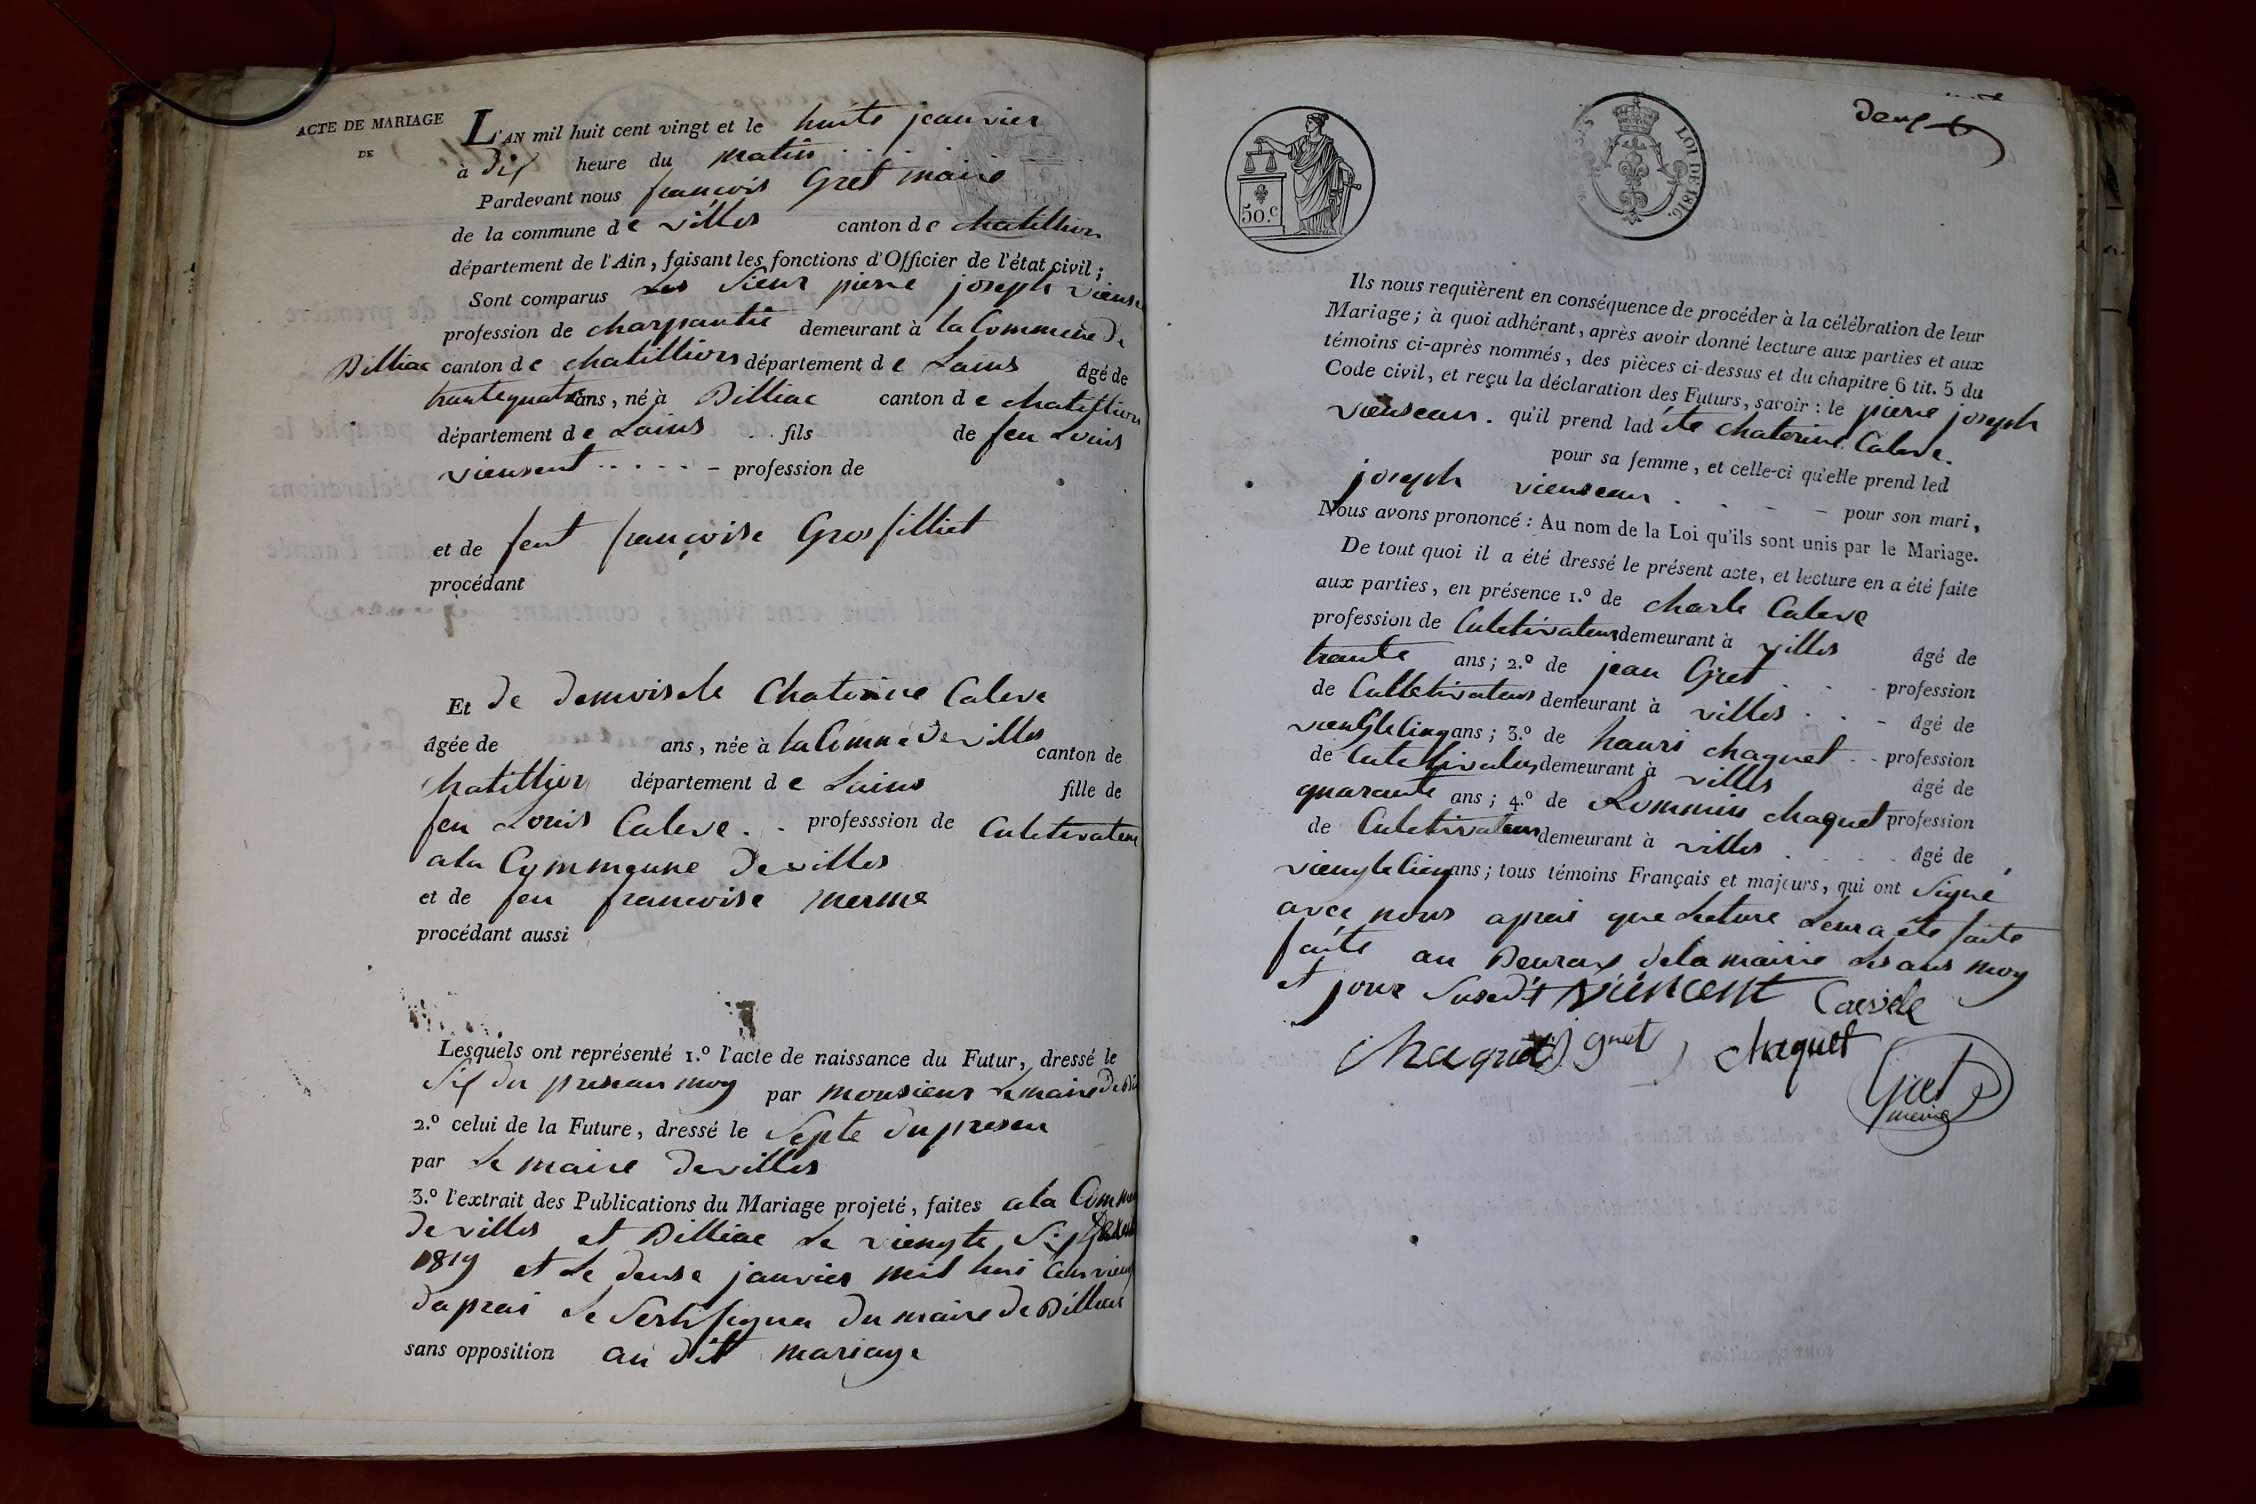 ACTE DE MARIAGE
DE
L'AN mil huit cent vingt et le huite jeanvier
à dix heure du matin
Pardevant nous françois Gret maire
de la commune de villes canton de chatillion
département de l'Ain, faisant les fonctions d'Officier de l'état civil;
Sont comparus Les Sieur pierre joseph
profession de charpantié demeurant à la Commune de
Billiac canton de chatillion département de Lains âgé de
trantequatre ans, né à Billiac canton de chatillion
département de Lains fils de feu Louis
viensent profession de
et de feut françoise Grosfilliet
procédant
Et de demoiselle Chaterine Caleve
âgée de ans, née à la Comune de villes canton de
chatillion département de Lains fille de
feu Louis Caleve profession de Culetivateur
a la Commeune De villes
et de feu francoise merme
procédant aussi
Lesquels ont représenté 1.º l'acte de naissance du Futur, dressé le
Six du presean moy par monsieur Le maire de
2.º celui de la Future, dressé le Septe du presen
par Le maire De villes
3.º l'extrait des Publications du Mariage projeté, faites a la
De villes et Billiac Le viengte
1819 et Le deuse janvier mil hui
daprai Le Sertifigua du maire de Billiac
sans opposition au dit mariage
50.c
LOI DE 1816.
deux
Ils nous requièrent en conséquence de procéder à la célébration de leur
Mariage; à quoi adhérant, après avoir donné lecture aux parties et aux
témoins ci-après nommés, des pièces ci-dessus et du chapitre 6 tit. 5 du
Code civil, et reçu la déclaration des Futurs, savoir: le pierre joseph
vienscan. qu'il prend ladite chaterine Caleve.
pour sa femme, et celle-ci qu'elle prend led
joseph vienscan pour son mari,
Nous avons prononcé: Au nom de la Loi qu'ils sont unis par le Mariage.
De tout quoi il a été dressé le présent acte, et lecture en a été faite
aux parties, en présence 1.º de charle Caleve
profession de Culetivateur demeurant à villes âgé de
trante ans; 2.º de jean Gret profession
de Culletivateur demeurant à villes âgé de
ans; 3.º de hanri chaquet profession
de Culetivateur demeurant à villes âgé de
quarante ans; 4.º de Rommin chaquet profession
de Culetivateur demeurant à villes âgé de
ans; tous témoins Français et majeurs, qui ont Signé
avec nous aprai que Lecture Leur a ete faite
faite au Beuraux de la mairie Les ans moy
et jour Susedit viencent Caevele
Chaquet gret chaquet
Gret
maire